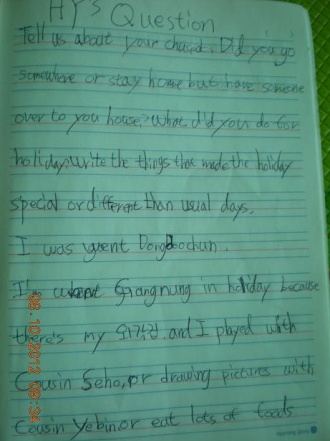 HY's Question
Tell us about your chused. Did you go
somewhere or stay home but have someone
over to you house? What did you do for
holiday. Write the things that made the holiday
special or different than usual days.
I was went Dongdoochun.
I went Gangnung in holiday because
there's my 외갓집. and I played with
Cousin Seho, or drawing pictures with
Cousin Yebin or eat lots of foods